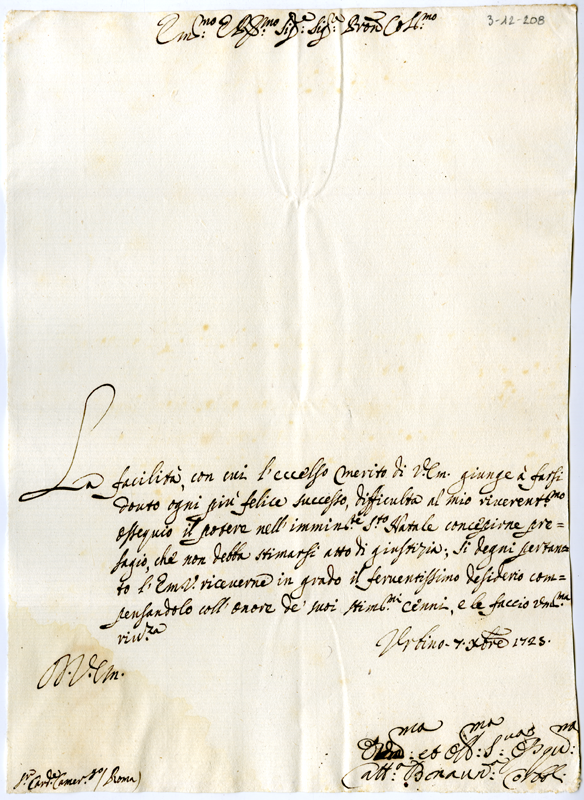 3-12-208
Em.mo e R.mo Sig.r Sig.r Pron Col.mo
La facilità, con cui l'eccelso merito di V.Em. giunge à farsi
douto ogni più felice successo, difficulta al mio riuerent.mo
ossequio il potere nell'immin.te S.to Natale concepirne pre=
sagio, che non debba stimarsi atto di giustizia; Si degni pertan=
to l'Em.V. riceuerne in grado il feruentissimo desiderio com=
pensandolo coll'onore de' suoi stim.mi Cenni, e le faccio um.ma
riu.za
Urbino 7. Xbre 1723.
D. V. Em.
et
S.r Card.e Camer.go / Roma)